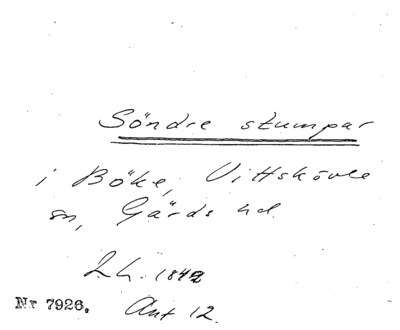 Söndre stumpar
i Böke, Vittskövle
sn, Gärds hd.
Lh. 1842
Nr 7926. Ant 12.